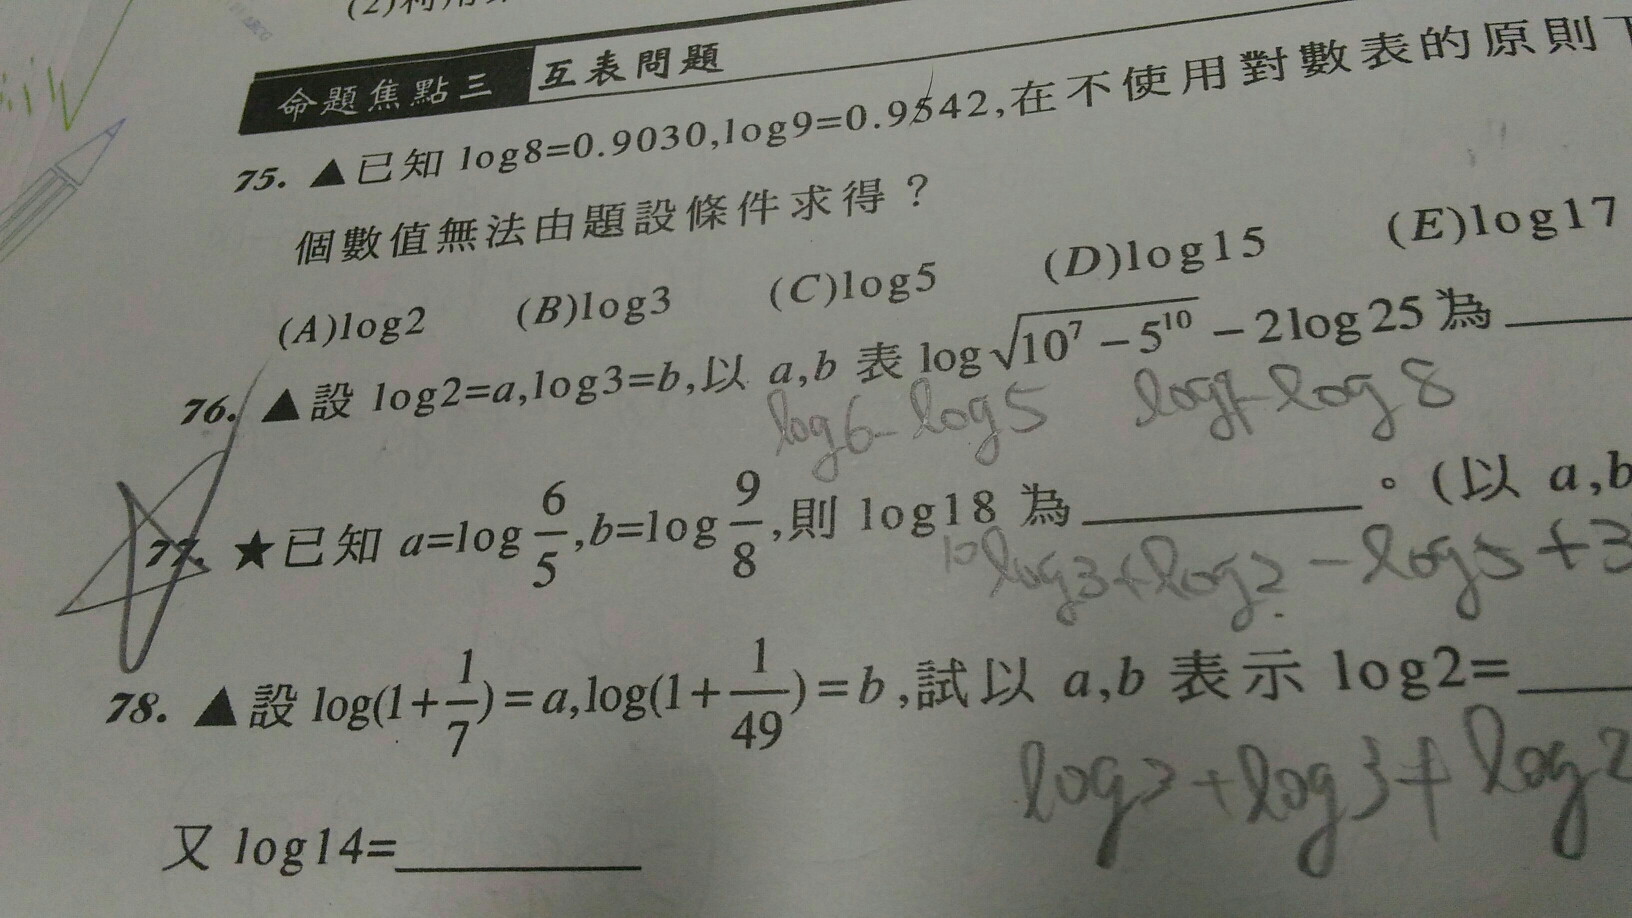 (2)利用
命題焦點三 互表問題
75. ▲已知 log8=0.9030,log9=0.9542,在不使用對數表的原則下
個數值無法由題設條件求得？
(A)log2 (B)log3 (C)log5 (D)log15 (E)log17
76. ▲設 log2=a,log3=b,以 a,b 表 log√(10⁷−5¹⁰) −2log25 為
log6-log5 log9-log8
77. ★已知 a=log 6/5,b=log 9/8,則 log18 為。(以 a,b
log3+log2-log5+3
78. ▲設 log(1+1/7)=a,log(1+1/49)=b,試以 a,b 表示 log2=
log3+log2
又 log14=